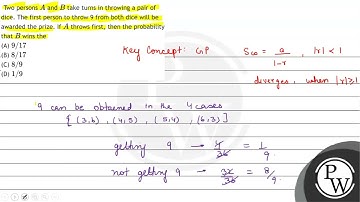 Two persons A and B take turns in throwing a pair of
dice. The first person to throw 9 from both dice will be
awarded the prize. If A throws first, then the probability
that B wins the
(A) 9/17
(B) 8/17
(C) 8/9
(D) 1/9
Key Concept: GP S∞ = a/1-r , |r| < 1
diverges, when |r|≥1
9 can be obtained in the 4 cases
[(3,6), (4,5), (5,4), (6,3)]
getting 9 → 4/36 = 1/9.
not getting 9 → 32/36 = 8/9.
P
W